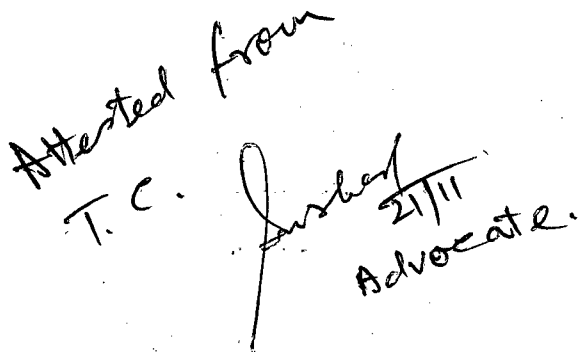 Attested from
T. C.
21/11
Advocate.